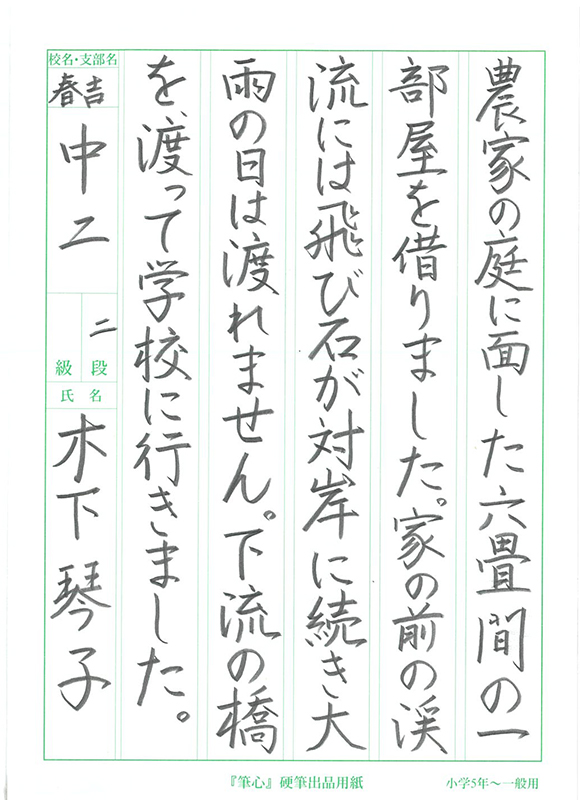 農家の庭に面した六畳間の一
部屋を借りました。家の前の渓
流には飛び石が対岸に続き大
雨の日は渡れません。下流の橋
を、渡って学校に行きました。
校名・支部名
春吉
中二
二
段
級
氏名
木下琴子
『筆心』硬筆出品用紙
小学5年〜一般用